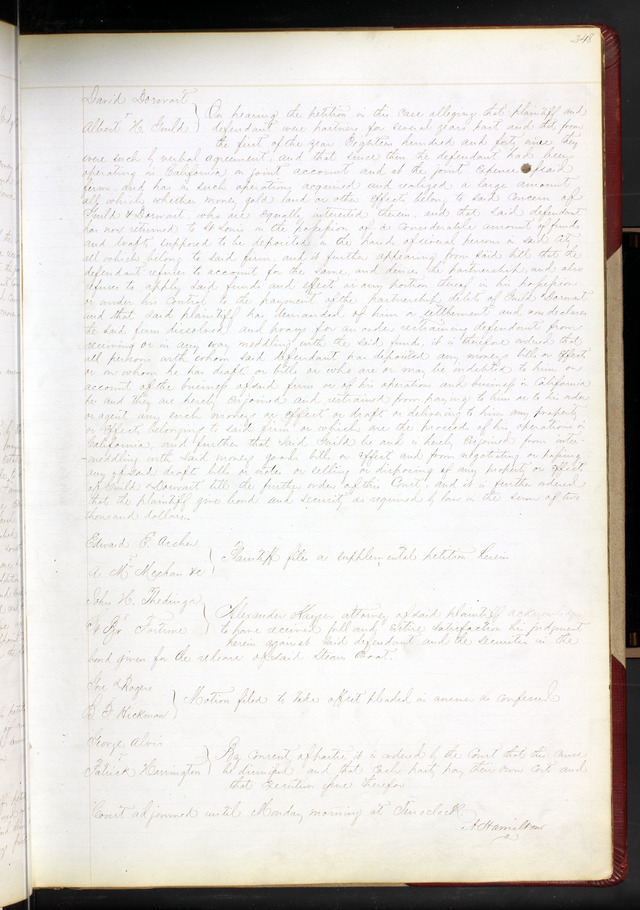 348
David Dorwart
vs
Albert H. Guild
On hearing the petition in this case alleging that plaintiff and
defendant were partners for several years past and that from
the first of the year Eighteen hundred and forty nine they
were such by verbal agreement, and that since then the defendant has been
operating in California on joint account and at the joint expense of said
firm and has in such operations acquired and realized a large amount
all which whether money gold land or other effects belong to said concern of
Guild & Dorwart who are equally interested therein and that said defendant
has now returned to St Louis in the possession of a considerable amount of funds
and drafts supposed to be deposited in the hands of several persons in said City
all which belong to said firm, and it further appearing from said bill that the
defendant refuses to account for the same and denies the partnership and also
refuses to apply said funds and effects or any portion thereof in his possession
or under his control to the payment of the partnership debts of Guild & Dorwart
and that said plaintiff has demanded of him a settlement and now declares
the said firm dissolved, and prays for an order restraining defendant from
receiving or in any way meddling with the said funds, it is therefore ordered that
all persons with whom said defendant has deposited any moneys bills or effects
or on whom he has drafts or bills or who are or may be indebted to him on
account of the business of said firm or of his operations and business in California
be and they are hereby enjoined and restrained from paying to him or to his order
or agent any such moneys or effects or drafts or delivering to him any property
or effects belonging to said firm or which are the proceeds of his operations in
California, and further that said Guild be and is hereby enjoined from inter-
-meddling with said moneys goods bills or effects and from negotiating or passing
any of said drafts bills or notes or selling or disposing of any property or effects
of Guild & Dorwart till the further order of this Court, and it is further ordered
that the plaintiff give bond and security as required by law in the sum of two
thousand dollars.
Edward E.
vs
A. Mc Mechan &c
Plaintiff files a supplemental petition herein
John H. Thedinga
vs
Str Fortune
Alexander attorney of said plaintiff acknowledges
to have received full and entire satisfaction his judgment
herein against said defendant and the securities in the
bond given for the release of said Steam Boat.
& Rogers
vs
B. F. Hickman
Motion filed to take offset pleaded in answer as confessed
George Alvis
vs
Patrick Harrington
By consent of parties it is ordered by the Court that this cause
be dismissed and that each party pay their own costs and
that Execution issue therefor
Court adjourned until Monday morning at Ten oclock
A. Hamilton